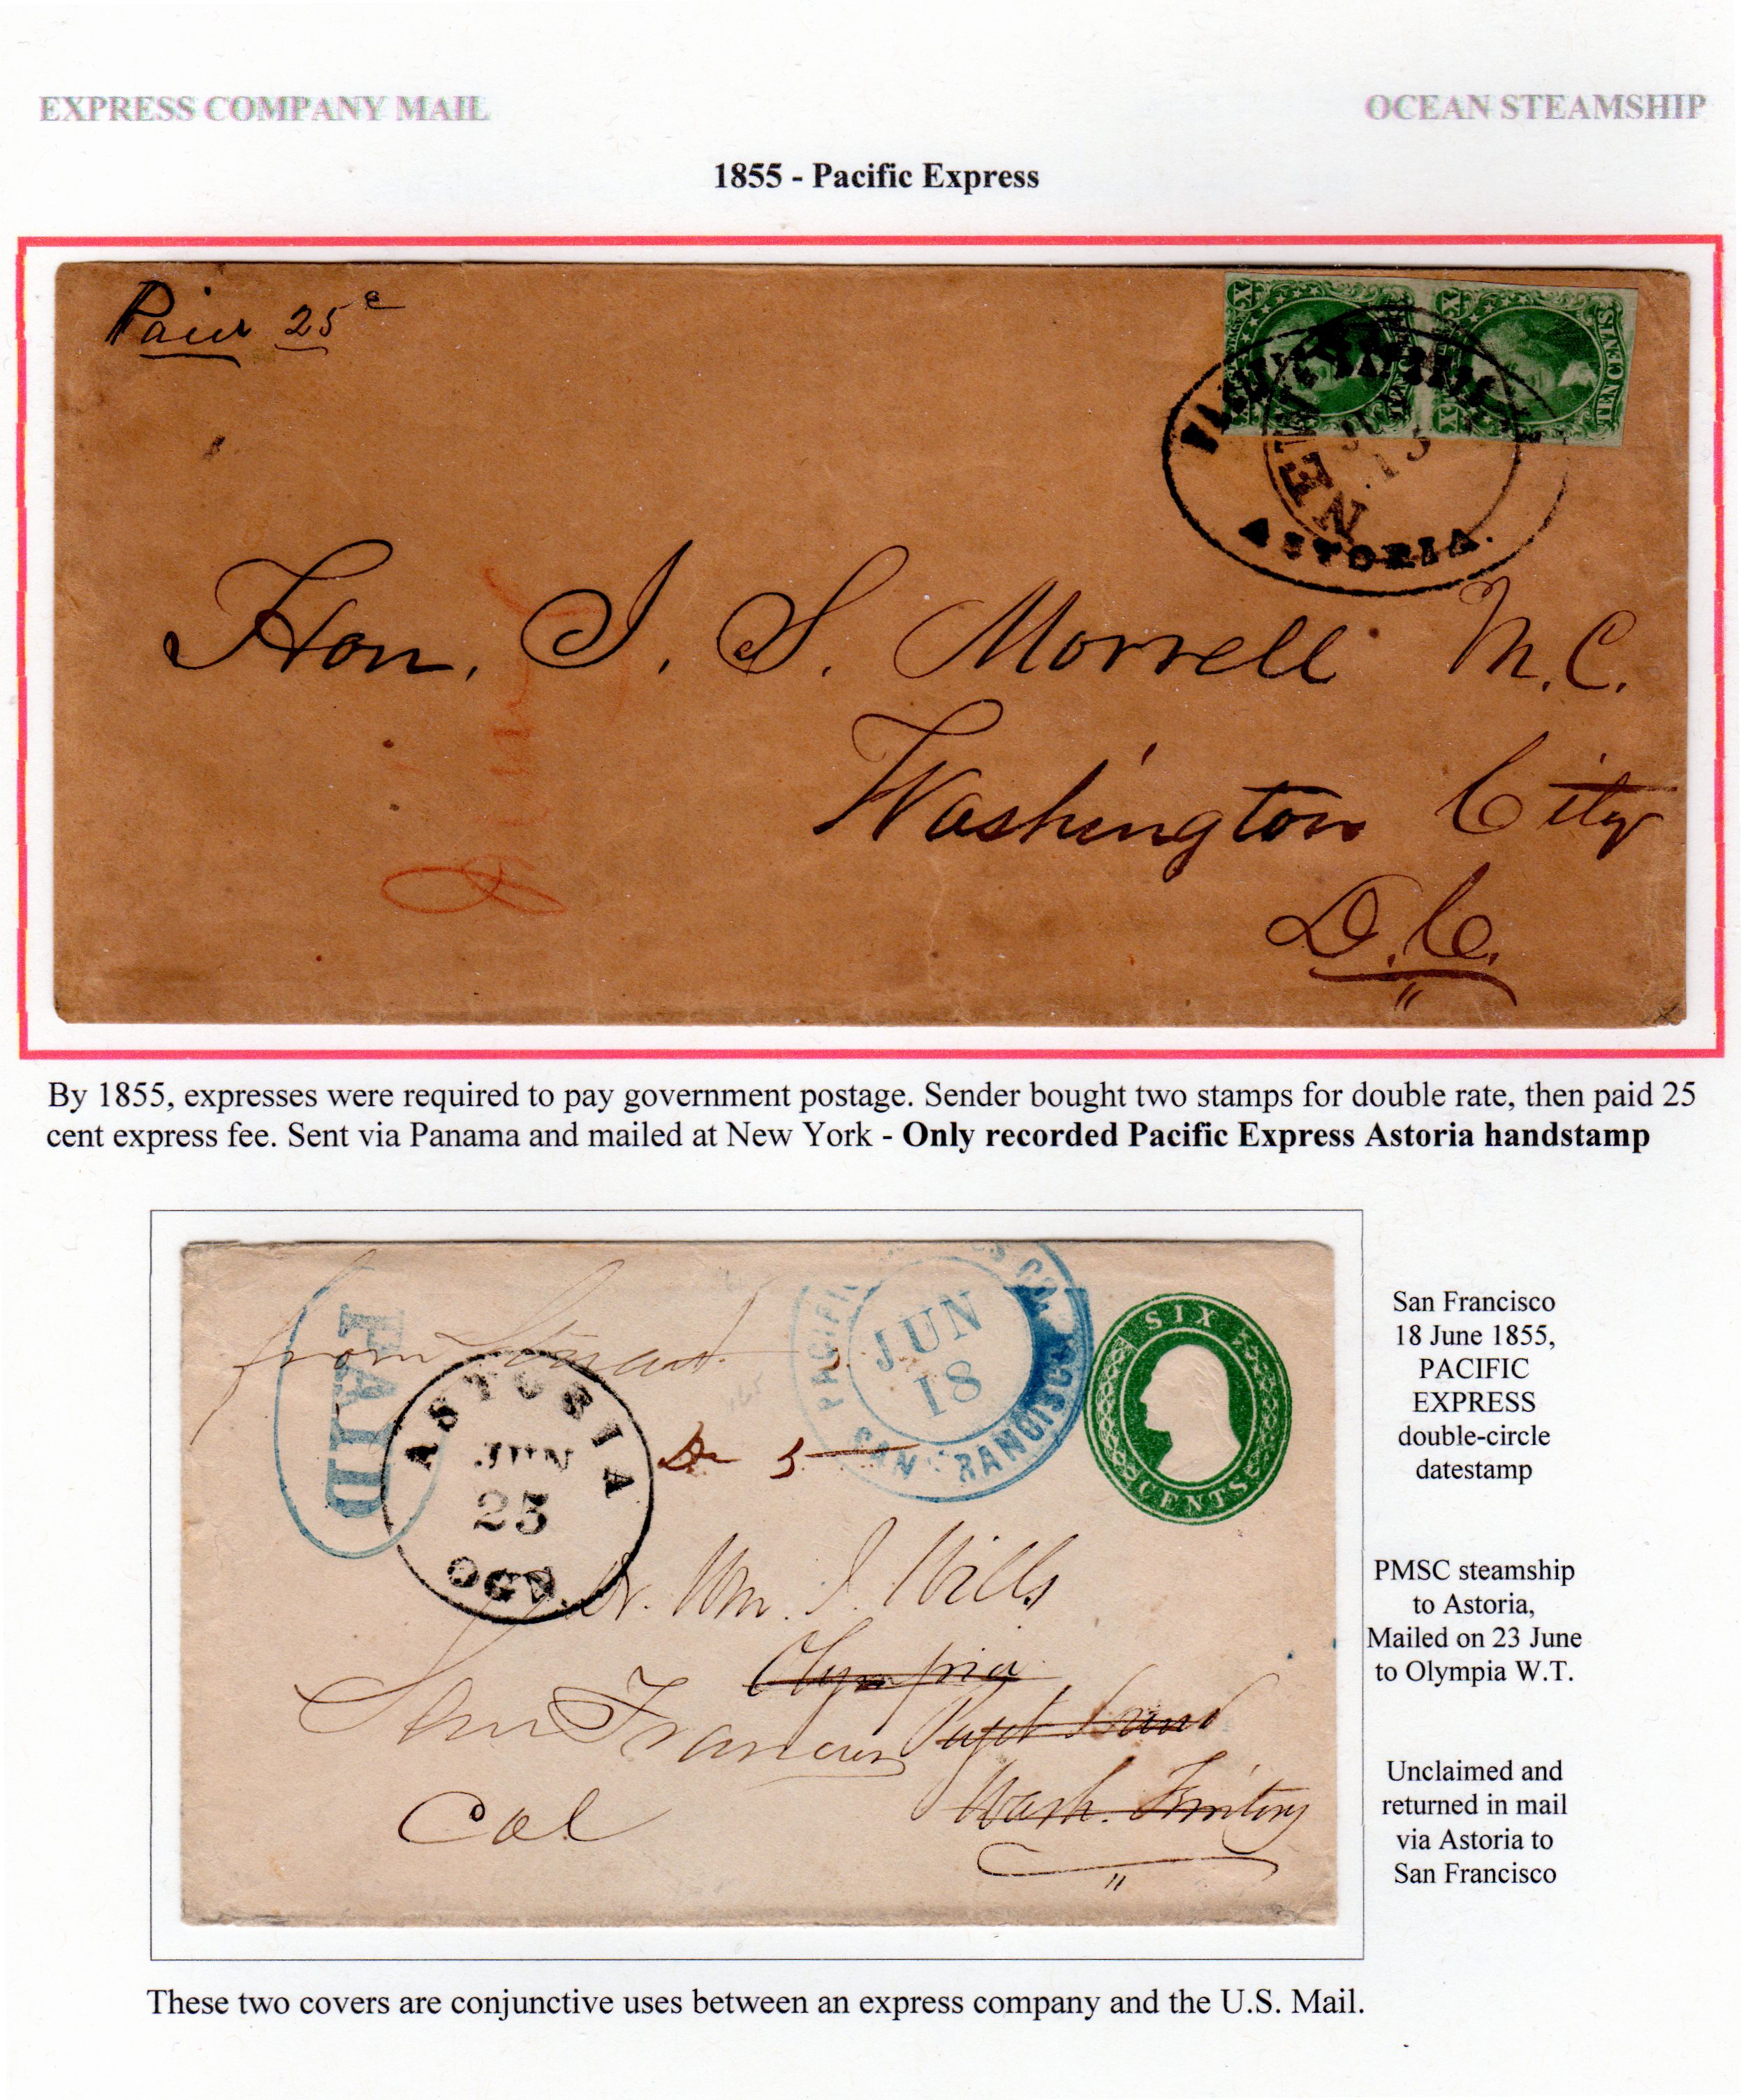 EXPRESS COMPANY MAIL
OCEAN STEAMSHIP
1855 - Pacific Express
Paid 25c
X X TEN CENTS
X X TEN CENTS
NEW
15
ASTORIA.
Hon. J. S. Morrell M.C.
Washington City
D.C.
By 1855, expresses were required to pay government postage. Sender bought two stamps for double rate, then paid 25
cent express fee. Sent via Panama and mailed at New York - Only recorded Pacific Express Astoria handstamp
PAID
from Stuart
PACIFIC CO.
JUN
18
SAN FRANCISCO
SIX
CENTS
ASTORIA
JUN
23
OGN.
5
Dr. Wm. J. Wills
Olympia
Puget Sound
San Francisco
Wash. Territory
Cal
San Francisco
18 June 1855,
PACIFIC
EXPRESS
double-circle
datestamp
PMSC steamship
to Astoria,
Mailed on 23 June
to Olympia W.T.
Unclaimed and
returned in mail
via Astoria to
San Francisco
These two covers are conjunctive uses between an express company and the U.S. Mail.